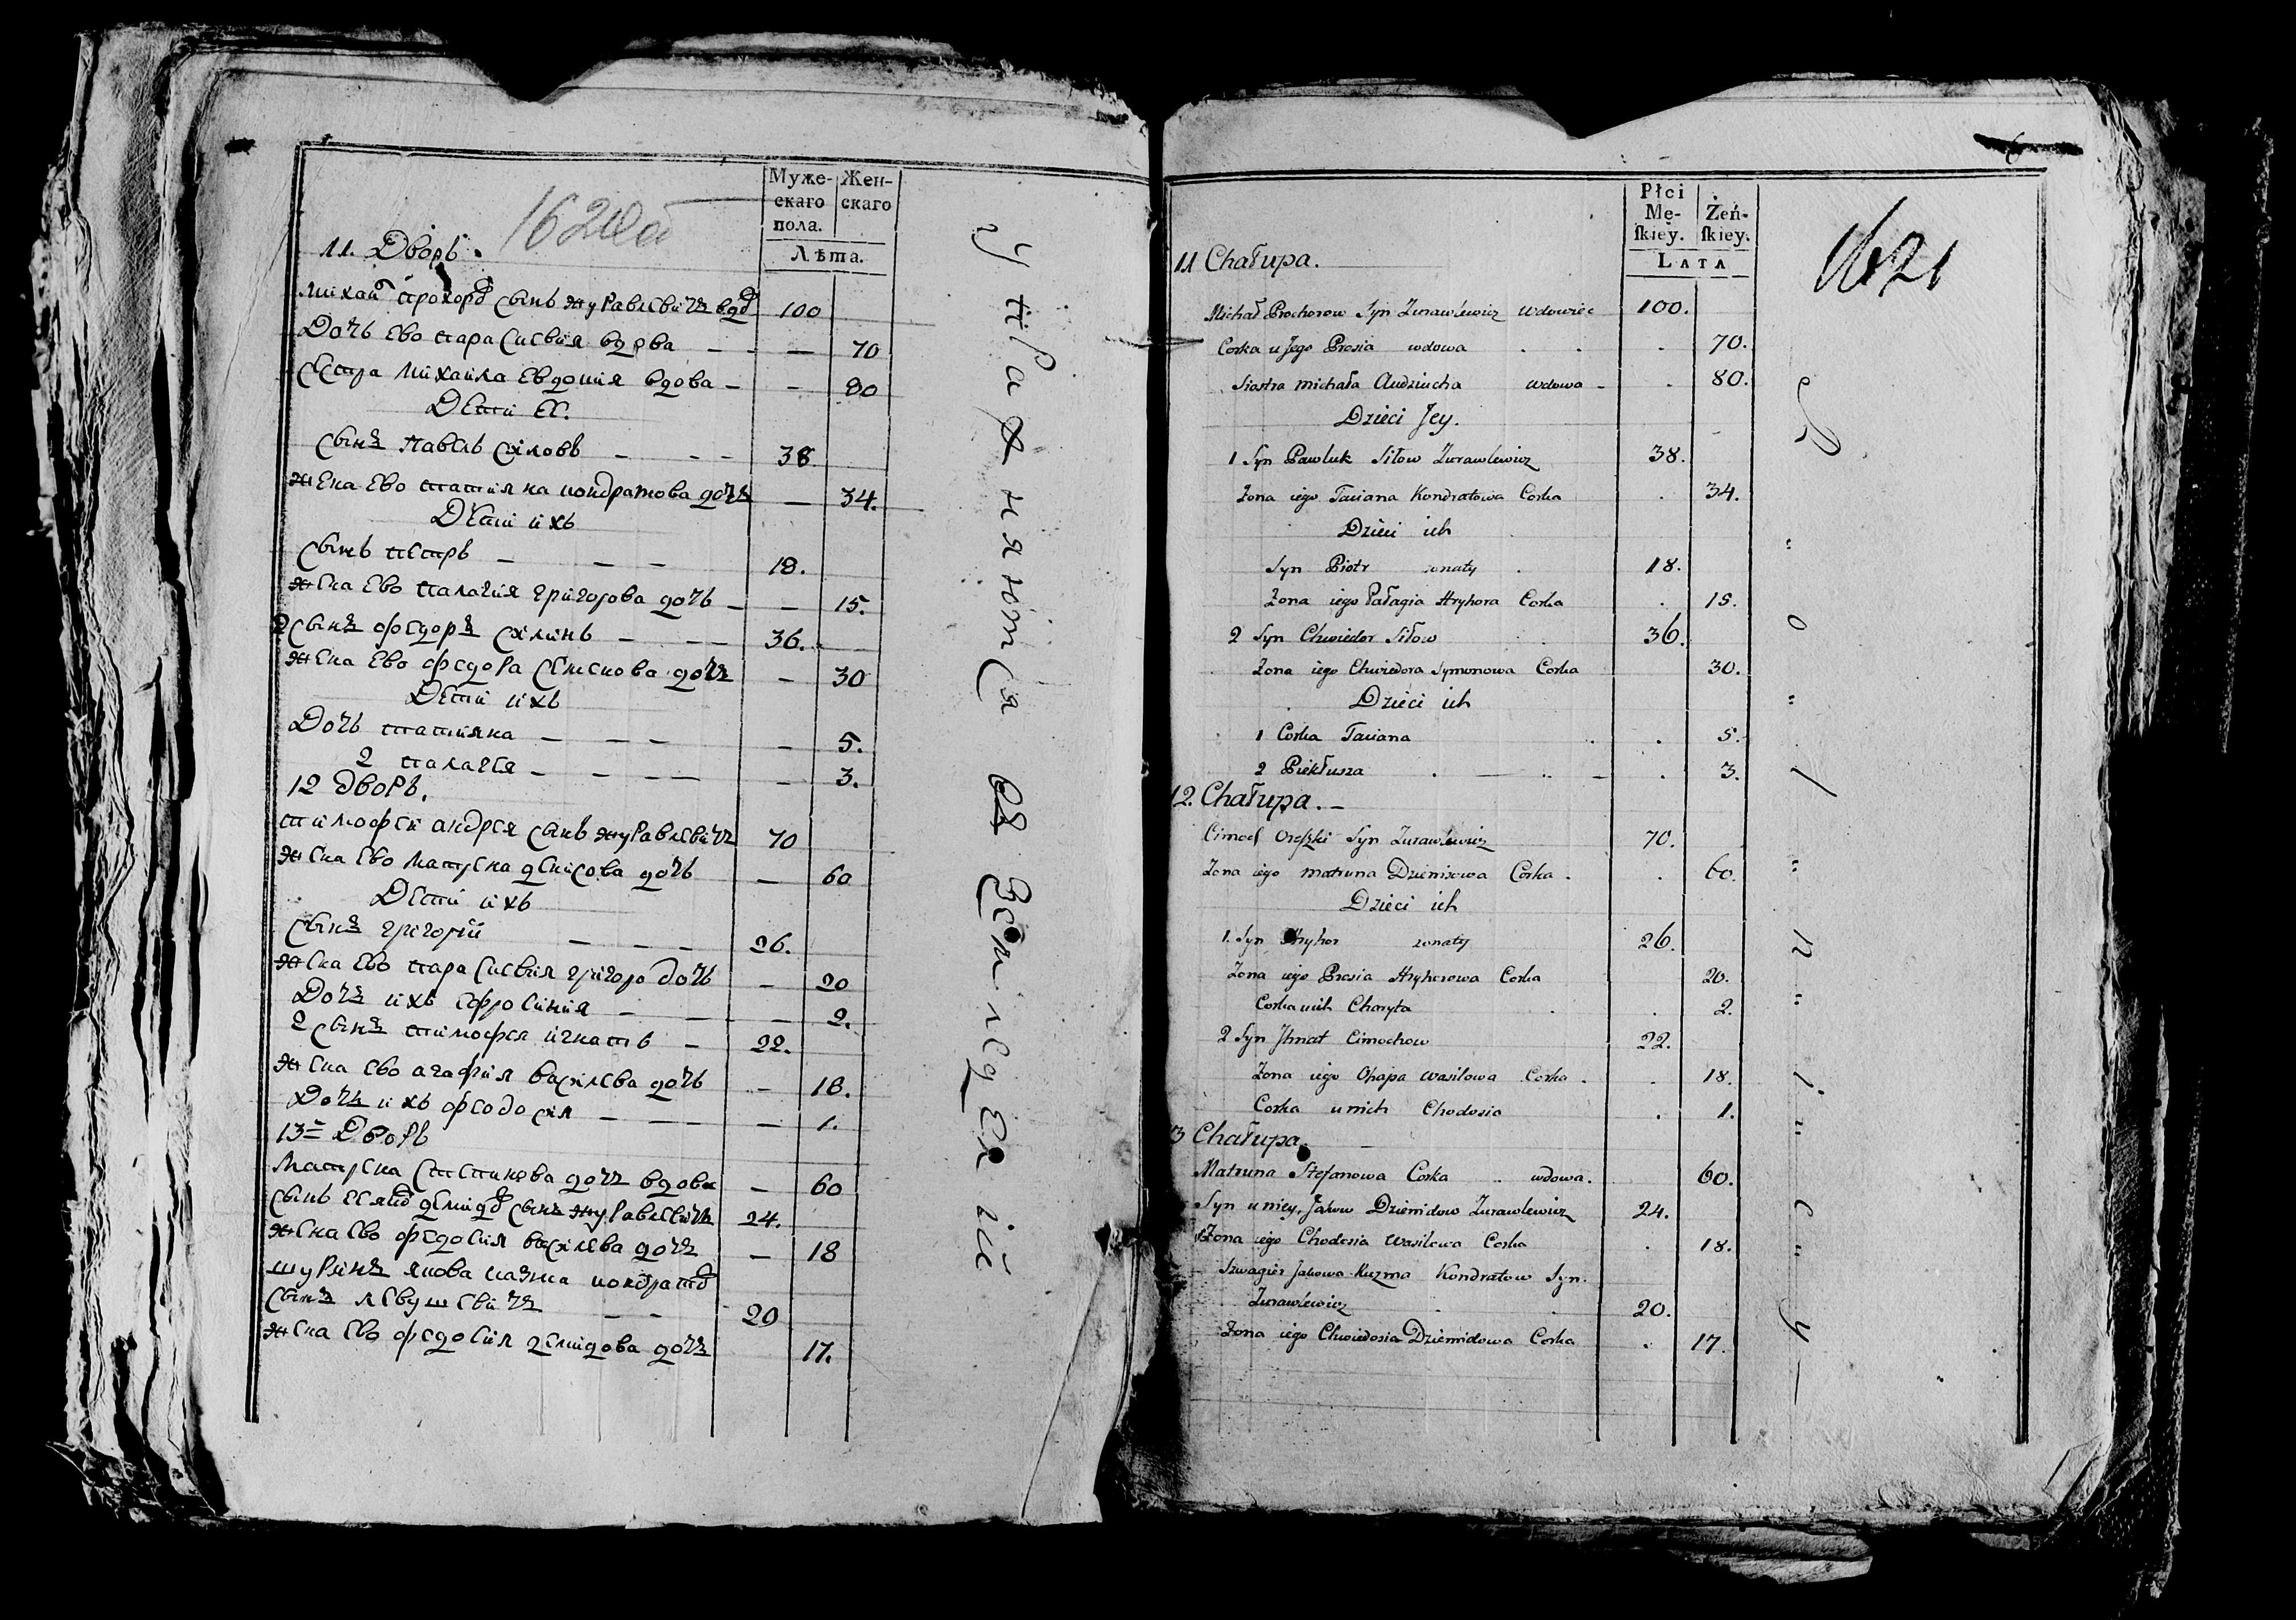 Муже-
скаго
пола.
Жен-
скаго
Лѣта.
11. Дворъ.
Михай прохоро сынъ журавлевичъ вдо 100
Дочь ево парасковия вдова — — 70
Сестра михаила евдокия вдова — — 80
Дети ее.
Сынъ павелъ силовъ — — — 38.
жена ево татияна кондратова дочь — 34.
Дети ихъ
Сынъ петръ — — — 18.
жена ево палагия григорова дочь — — 15.
2 сынъ федоръ силинъ — — 36.
жена ево федора семенова дочь — 30
Дети ихъ
Дочь татияна — — — — 5.
2 палагея — — — — 3.
12 дворъ.
тимофей андрея сынъ журавлевичъ 70
жена ево матрена денисова дочь — 60
Дети ихъ
Сынъ григорий — — — 26.
жена ево парасковия григоро дочь — 20
Дочь ихъ ефросиния — — — 2.
2 сынъ тимофея игнатъ — 22.
жена ево агафия василева дочь — 18.
Дочь ихъ феодосия — — — — 1.
13= Дворъ
Матрена степинова дочь вдова — 60
сынъ ея демидо сынъ журавлевичъ 24.
жена ево федосия василева дочь — 18
шуринъ якова казма кондрато
сынъ левушевичъ — — 20
жена ево федосия демидова дочь 17.
Упражняются въ земледелiе
1621
Płci
Mę-
ſkiey.
Żeń-
ſkiey.
LATA
11 Chałupa.
Michał Prochorow Syn Zurawlewicz wdowiec 100.
Corka u Jego Prosia wdowa . . . 70.
Siostra michała Audziucha wdowa - . 80.
Dzieci Jey.
1 Syn Pawluk Siłow Zurawlewicz 38.
Zona iego Taciana Kondratowa Corka . 34.
Dzieci ich
Syn Piotr zonaty . 18.
Zona iego Pałagia Hryhora Corka . 15.
2 Syn Chwiedor Siłow 36.
Zona iego Chwiedora Symonowa Corka 30.
Dzieci ich
1 Corka Taciana . . 5.
2 Piekłusza . — . - . 3.
12. Chałupa. —
Cimoch Syn Zurawlewicz 70.
Zona iego matruna Dzienisowa Corka . . 60.
Dzieci ich
1. Syn Hryhor zonaty 26.
Zona iego Prosia Hryhorowa Corka 20.
Corka u nich Charyta . . 2.
2 Syn Jhnat Cimochow 22.
Zona iego Ohapa Wasilowa Corka . . 18.
Corka u nich Chodosia . 1.
13 Chałupa.
Matruna Stefanowa Corka . . wdowa. 60.
Syn u niey, Jakow Dziemidow Zurawlewicz 24.
Zona iego Chodosia Wasilowa Corka . 18.
Szwagier Jakowa Kuzma Kondratow Syn.
Zurawlewicz . . 20.
Zona iego Chwiedosia Dziemidowa Corka . 17.
R " o " l " n " i " c " y —